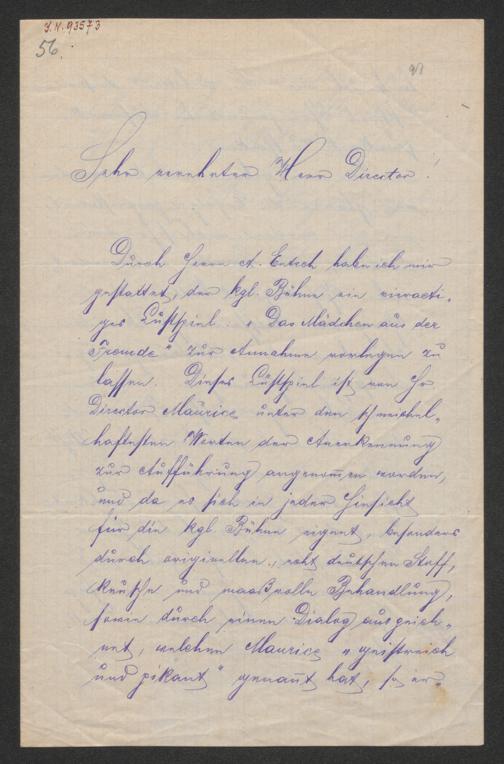 J.N. 93573
56.
Sehr verehrter Herr Director!
Durch Herrn A. Entsch habe ich mir
gestattet, der kgl. Bühne ein einacti-
ges Lustspiel „Das Mädchen aus der
Fremde“ zur Annahme vorlegen zu
lassen. Dieses Lustspiel ist von Hr
Director Maurice unter den schmeichel-
haftesten Worten der Anerkennung
zur Aufführung angenommen worden,
und da es sich in jeder Hinsicht
für die kgl. Bühne eignet, besonders
durch originellen, echt deutschen Stoff,
keusche und maaßvolle Behandlung,
sowie durch einen Dialog ausgezeich-
net, welchen Maurice „geistreich
und pikant“ genannt hat, so er-